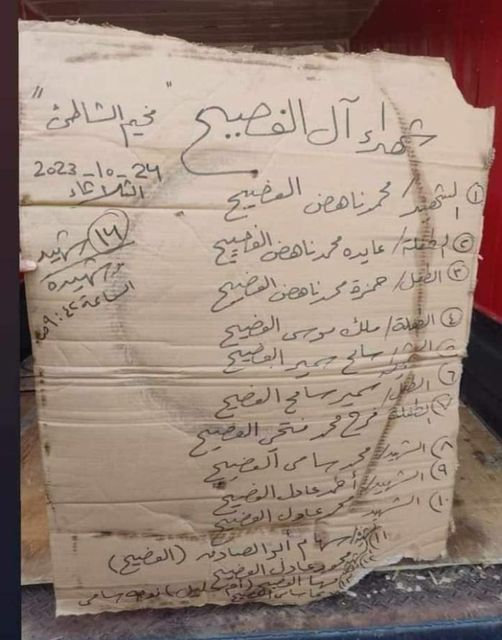 شهداء آل الفصيح
" مخيم الشاطئ "
2023-10-24
الثلاثاء
١٦ شهيد
وشهيده
الساعة ٩:٤٥
① الشهيد / محمد ناهض الفصيح
② الطفلة / عايده محمد ناهض الفصيح
③ الطفل / حمزة محمد ناهض الفصيح
④ الطفلة / ملك موسى الفصيح
سامح سمير الفصيح
⑥ الطفل / سمير سامح الفصيح
⑦ الطفلة / فرح محمد فتحي الفصيح
⑧ الشهيد / محمد سامي الفصيح
⑨ الشهيد / أحمد عادل الفصيح
⑩ الشهيد محمد عادل الفصيح
⑪ سهام أبو الصادق (الفصيح)
محمود عادل الفصيح
الفصيح